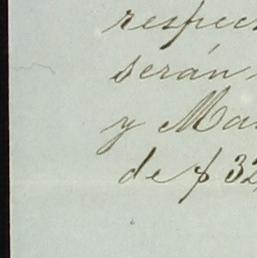 respec
serán
y Ma
de $ 32